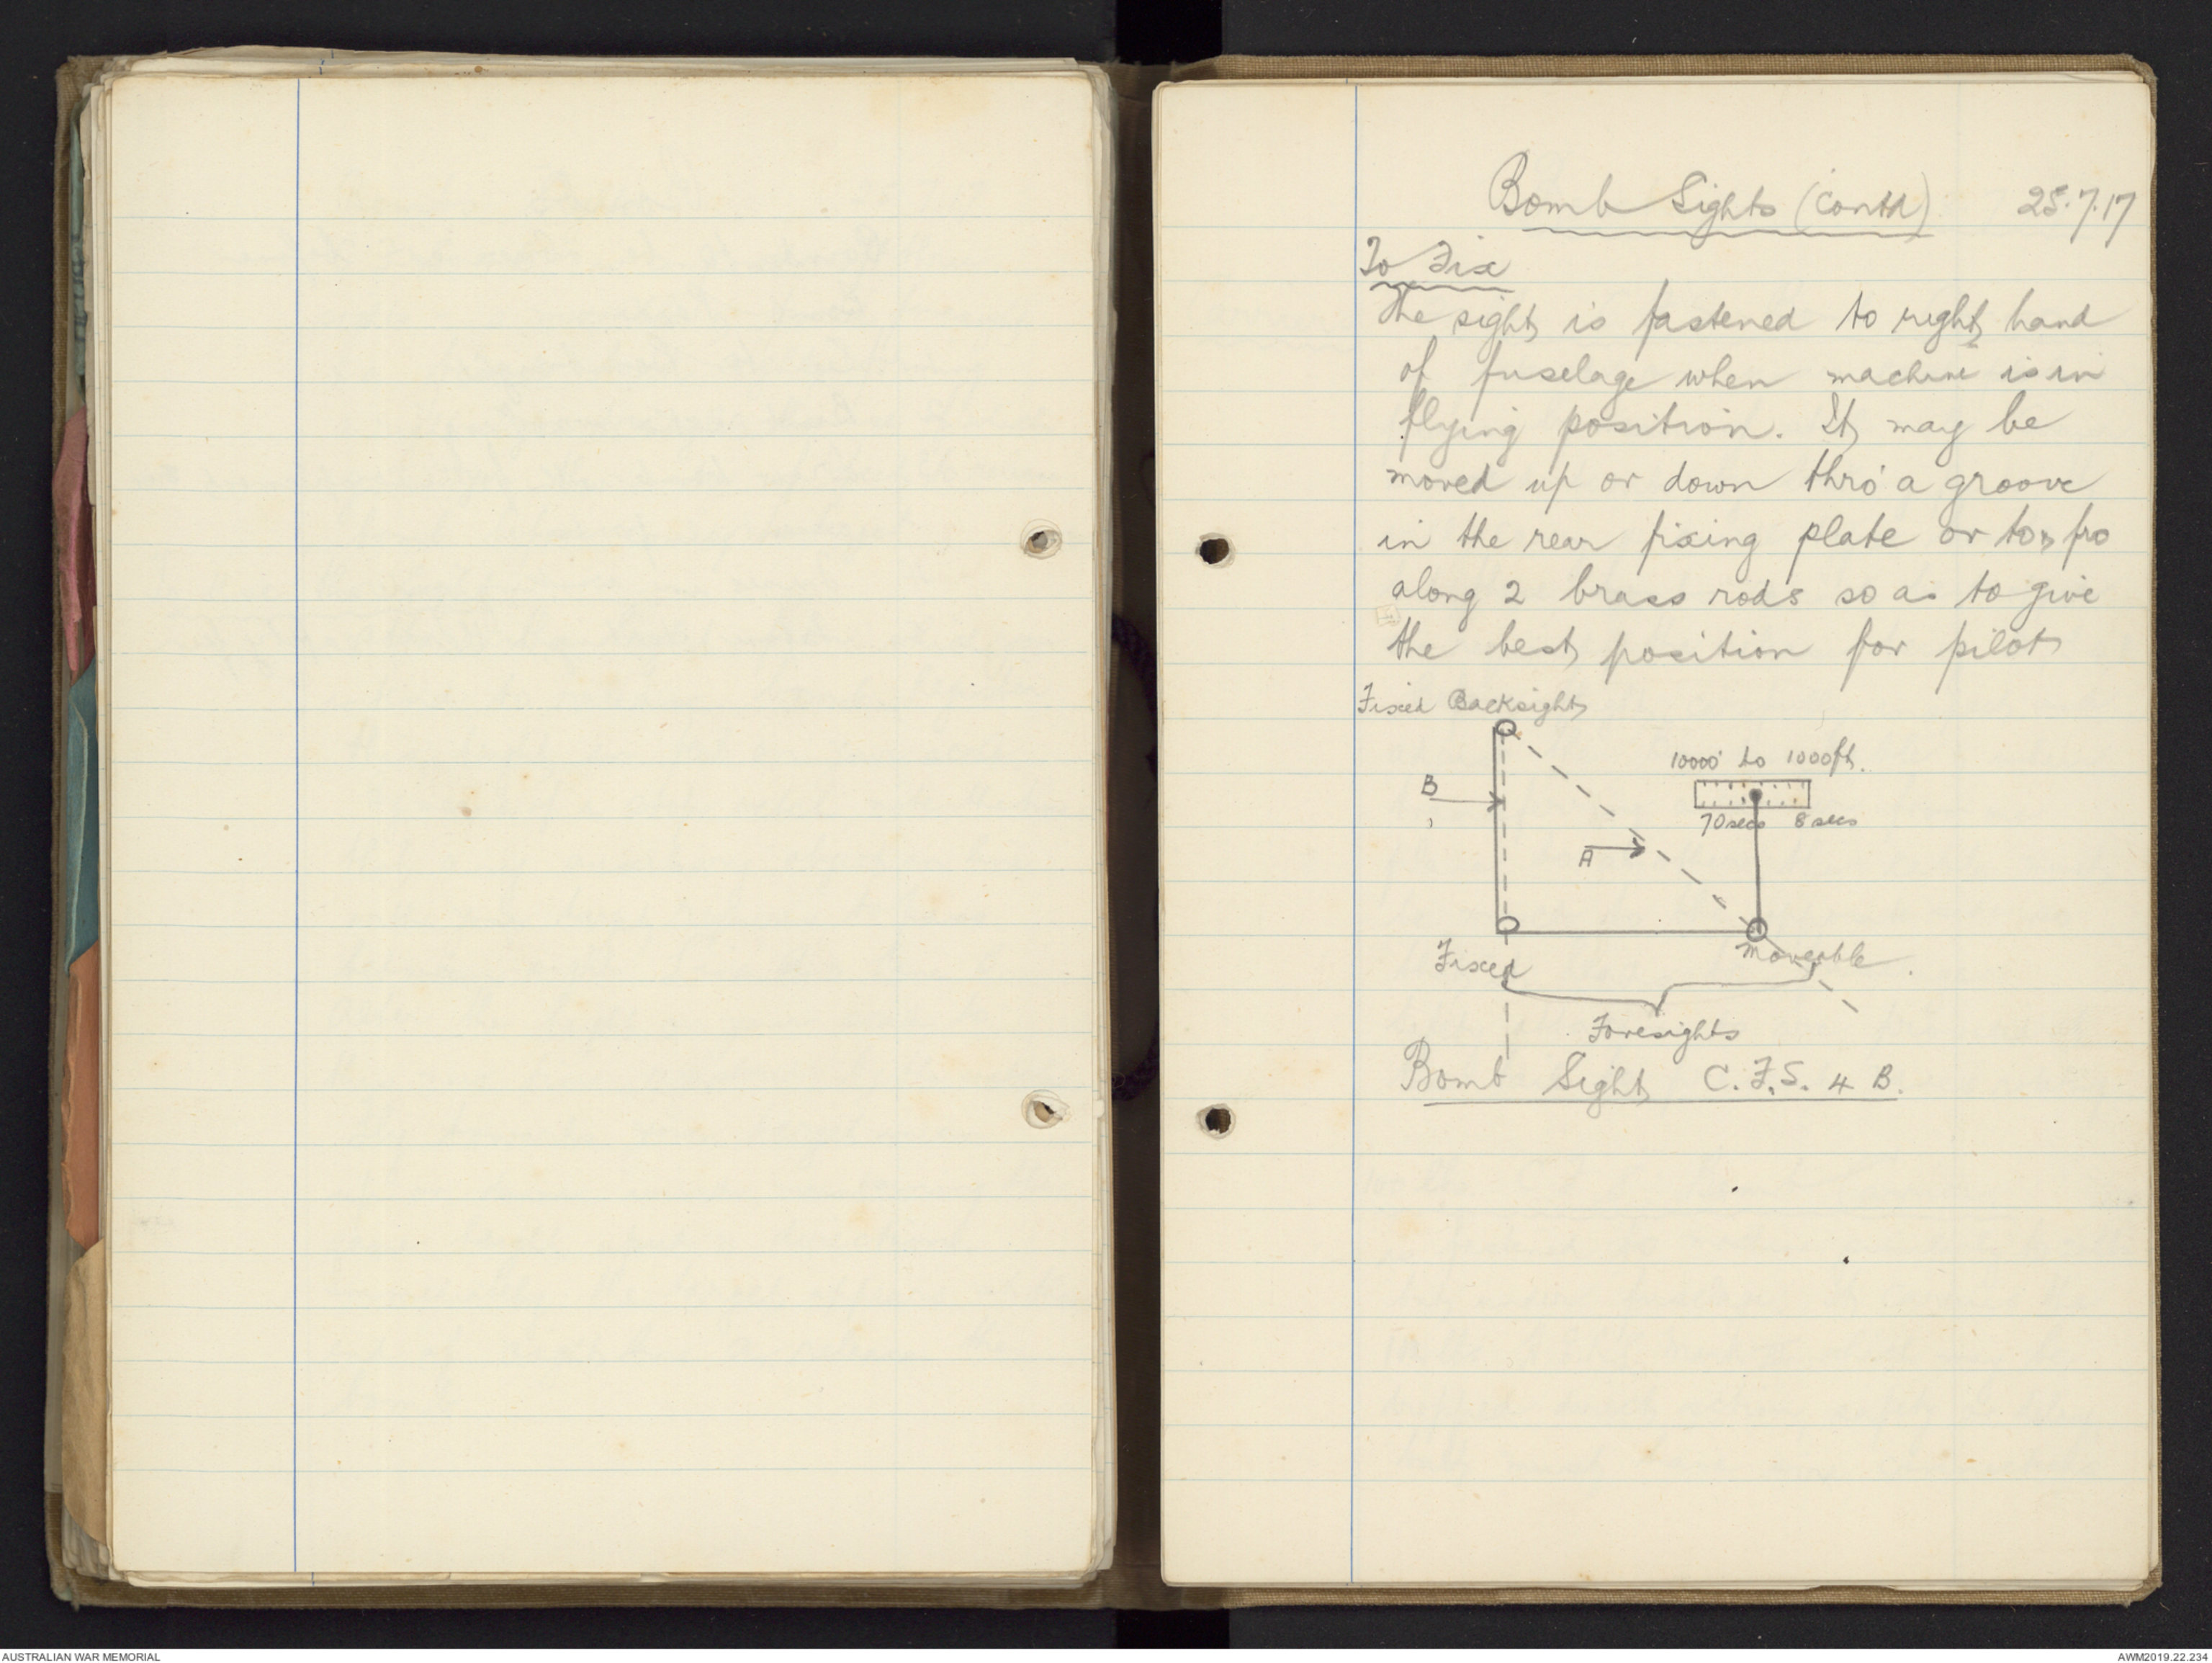 Bomb Sights (contd) 25.7.17
To Fix
The sight is fastened to right hand
of fuselage when machine is in
flying position. It may be
moved up or down thro' a groove
in the rear fixing plate or to & fro
along 2 brass rods so as to give
the best position for pilot
Fixed Backsight
10000' to 1000ft.
B
70secs 8 secs
A
Fixed
Moveable
Foresights
Bomb Sight C.F.S. 4 B.
AUSTRALIAN WAR MEMORIAL
AWM2019.22.234